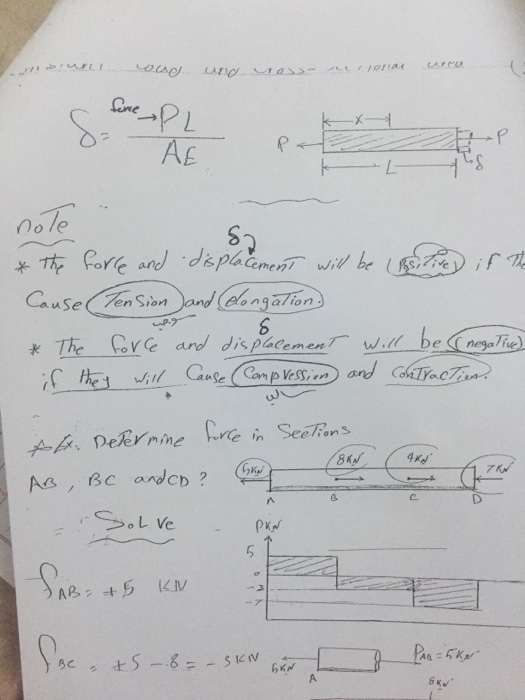 constant load and cross-sectional area
force → PL
δ = 
AE
x
P
P
L
δ
note
δ
* The force and displacement will be (Positive) if The
Cause (Tension) and (elongation).
δ
* The force and displacement will be (negative)
if they will Cause (Compression) and contraction.
Ex. Determine force in Sections
AB, BC and CD?
5KN
8KN
4KN
7KN
A
B
C
D
= Solve
P KN
5
0
-3
-7
fAB = +5 KN
fBC = +5 - 8 = -3 KN
5KN
A
PAB = 5KN